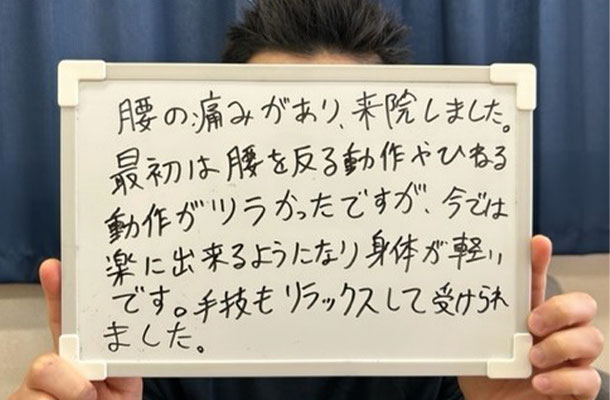 腰の痛みがあり、来院しました。
最初は腰を反る動作やひねる
動作がツラかったですが、今では
楽に出来るようになり身体が軽い
です。手技もリラックスして受けられ
ました。